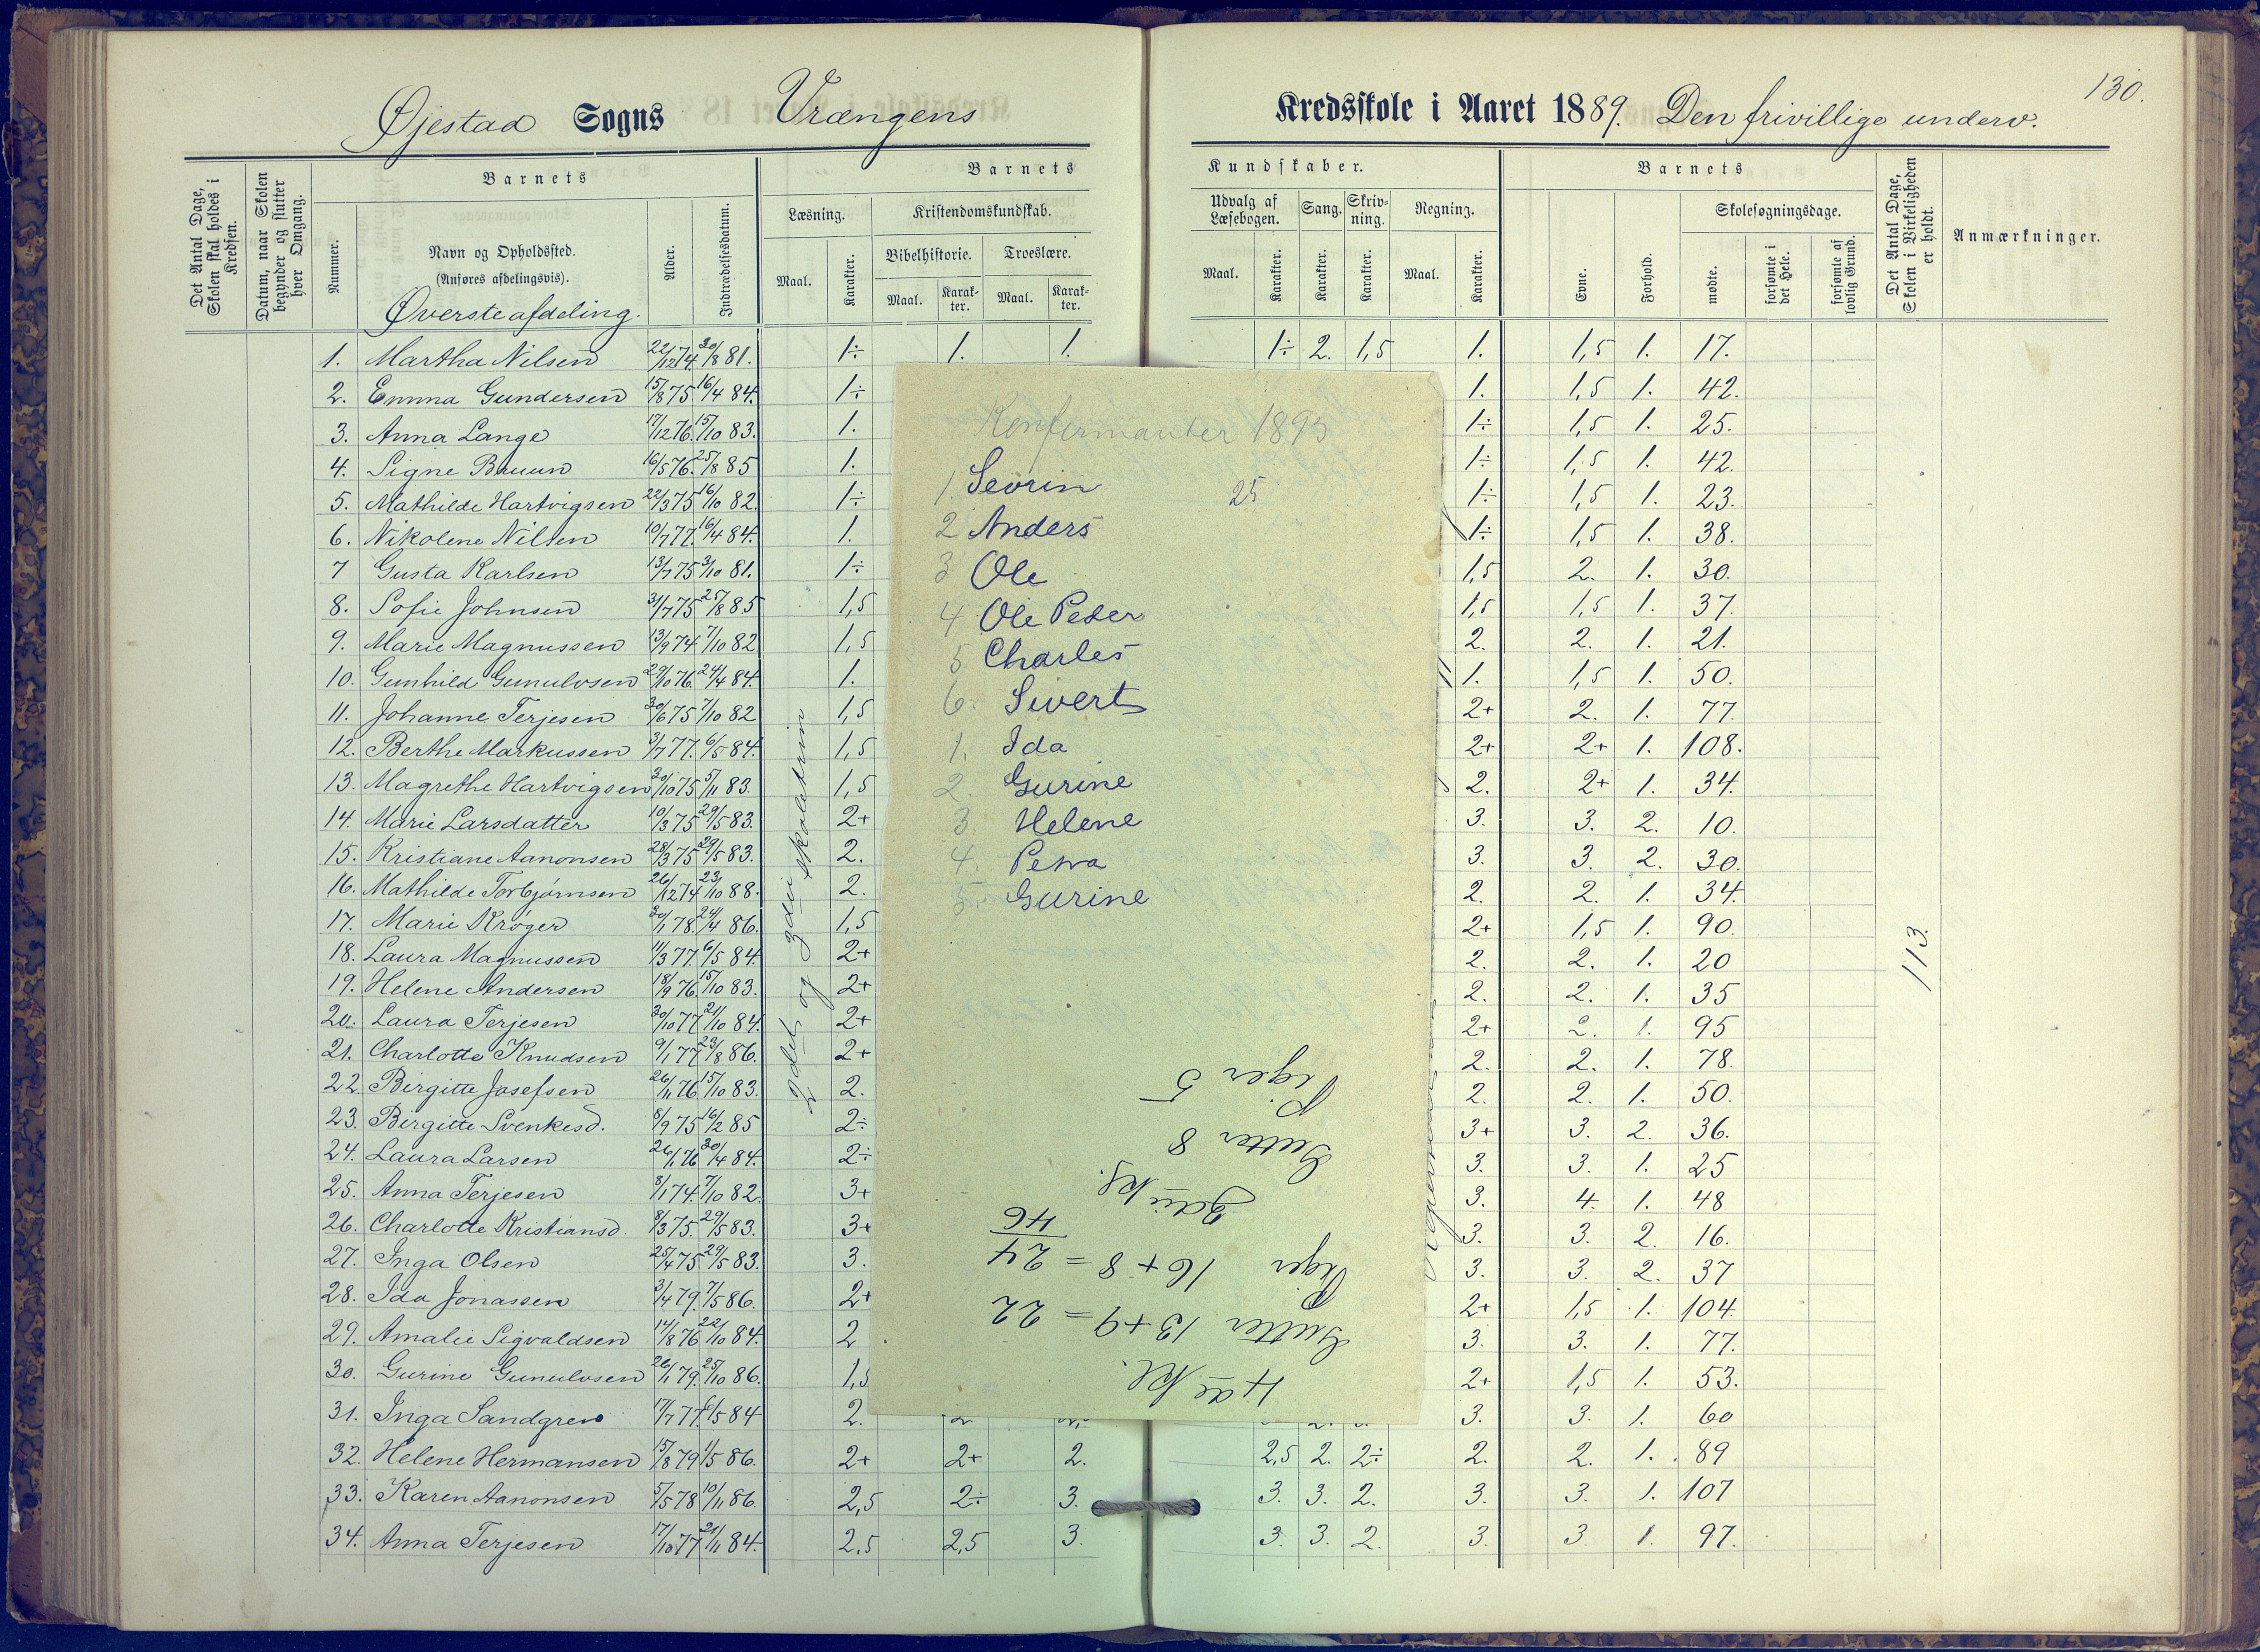 130.
Øjestad Sogns Vrængens Kredsskole i Aaret 1889. Den frivillige underv.
Det Antal Dage, Skolen skal holdes i Kredsen.
Datum, naar Skolen begynder og slutter hver Omgang.
Barnets
Nummer.
Navn og Opholdssted.
(Anføres afdelingsvis).
Øverste afdeling.
Alder.
Indtrædelsesdatum.
Barnets Kundskaber.
Læsning.
Maal. Karakter.
Kristendomskundskab.
Bibelhistorie. Troeslære.
Maal. Karakter. Maal. Karakter.
Udvalg af Læsebogen. Sang. Skrivning. Regning.
Maal. Karakter. Karakter. Karakter. Maal. Karakter.
Barnets
Evne. Forhold.
Skolesøgningsdage.
mødte. forsømte i det Hele. forsømte af lovlig Grund.
Det Antal Dage, Skolen i Virkeligheden er holdt.
Anmærkninger.
1. Martha Nilsen 22/12 74. 30/8 81. 1÷ 1. 1. 1÷ 2. 1,5 1. 1,5 1. 17.
2. Emma Gundersen 15/8 75 16/4 84. 1÷ 1. 1,5 1. 42.
3. Anna Lange 17/12 76. 15/10 83. 1. 1÷ 1,5 1. 25.
4. Signe Bruun 16/5 76. 25/8 85 1. 1÷ 1,5 1. 42.
5. Mathilde Hartvigsen 22/3 75 16/10 82. 1÷ 1÷ 1,5 1. 23.
6. Nikolene Nilsen 10/7 77. 16/4 84. 1. 1÷ 1,5 1. 38.
7 Gusta Karlsen 13/7 75 3/10 81. 1÷ 1,5 2. 1. 30.
8. Sofie Johnsen 31/7 75 25/8 85 1,5 1,5 1,5 1. 37.
9. Marie Magnussen 13/9 74 7/10 82 1,5 2. 2. 1. 21.
10. Gunhild Gunulvsen 29/10 76. 24/4 84. 1. 1. 1,5 1. 50.
11. Johanne Terjesen 30/6 75 7/10 82 1,5 2+ 2. 1. 77.
12. Berthe Markussen 3/7 77. 6/5 84. 1,5 2+ 2+ 1. 108.
13. Magrethe Hartvigsen 30/10 75 5/11 83. 1,5 2. 2+ 1. 34.
14. Marie Larsdatter 10/3 75 29/5 83. 2+ 3. 3. 2. 10.
15. Kristiane Aanonsen 28/3 75 29/5 83. 2. 3. 3. 2. 30.
16. Mathilde Torbjørnsen 26/12 74 23/10 88. 2. 2. 2. 1. 34.
17. Marie Krøger 30/1 78. 24/4 86. 1,5 2+ 1,5 1. 90.
18. Laura Magnussen 11/3 77. 6/5 84. 2+ 2. 2. 1. 20
19. Helene Andersen 18/9 76. 15/10 83. 2+ 2. 2. 1. 35
20. Laura Terjesen 30/10 77 21/10 84. 2+ 2+ 2. 1. 95
21. Charlotte Knudsen 9/1 77 23/8 86. 2+ 2. 2. 1. 78.
22. Birgitte Josefsen 26/11 76 15/10 83. 2. 2. 2. 1. 50.
23. Birgitte Svenkesd. 8/9 75 16/2 85 2÷ 3+ 3. 2. 36.
24. Laura Larsen 26/1 76 30/4 84. 2÷ 3. 3. 1. 25
25. Anna Terjesen 8/1 74. 7/10 82. 3+ 3. 4. 1. 48
26. Charlotte Kristiansd. 8/3 75. 29/5 83. 3+ 3. 3. 2. 16.
27. Inga Olsen 25/4 75 29/5 83. 3. 3. 3. 2. 37
28. Ida Jonassen 3/4 79. 7/5 86. 2+ 2+ 1,5 1. 104.
29. Amalie Sigvaldsen 14/8 76 22/10 84. 2 3. 3. 1. 77.
30. Gurine Gunulvsen 26/1 79. 25/10 86. 1,5 2+ 1,5 1. 53.
31. Inga Sandgren 17/7 77. 6/5 84 2. 3. 3. 1. 60
32. Helene Hermansen 15/8 79 1/5 86. 2+ 2+ 2. 2,5 2. 2÷ 2. 2. 1. 89
33. Karen Aanonsen 5/5 78 10/11 86. 2,5 2÷ 3. 3. 3. 2. 3. 3. 1. 107
34. Anna Terjesen 17/10 77 21/11 84. 2,5 2,5 3. 3. 3. 2. 3. 3 1. 97.
2det og 3die skoletrin
113.
Konfirmanter 1895
1. Sevrin 25
2 Anders
3 Ole
4 Ole Peder
5 Charles
6. Sivert
1. Ida
2. Gurine
3. Helene
4. Petra
5. Gurine
4de Kl.
Gutter 13+9 = 22
Piger 16+8 = 24
46
3die Kl.
Gutter 8
Piger 5